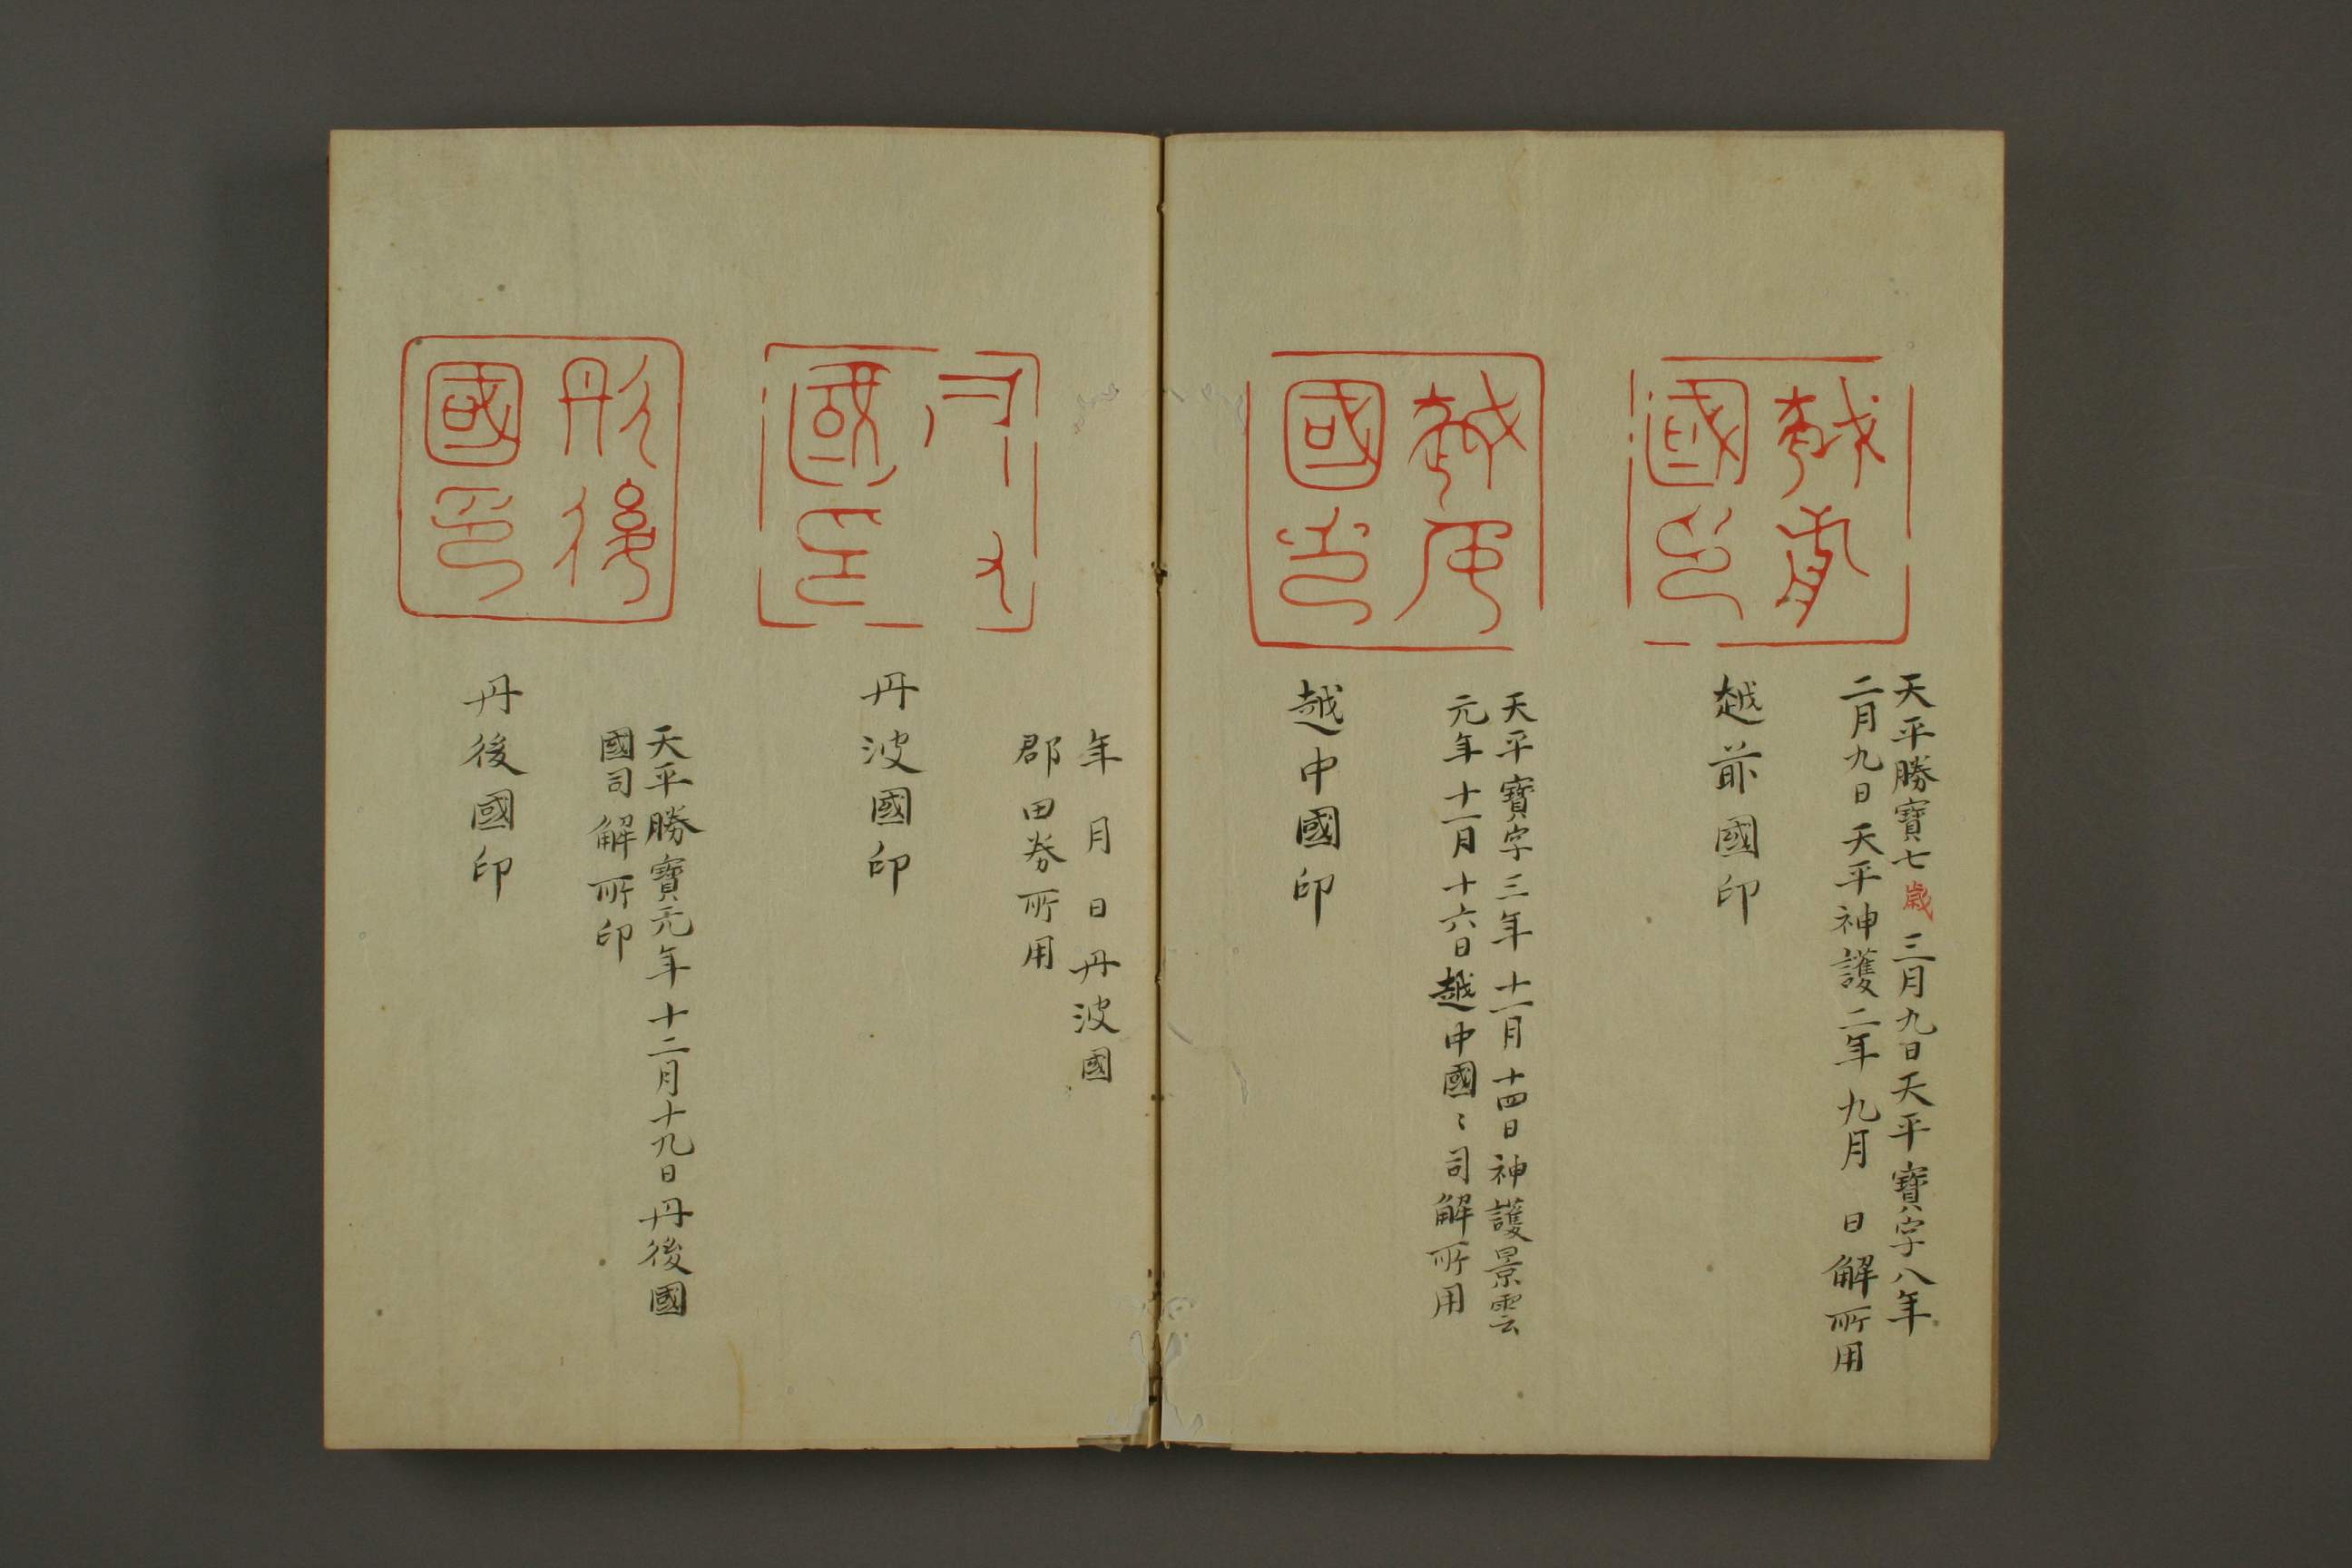 越前
國印
天平勝寶七歲三月九日天平寶字八年
二月九日天平神護二年九月 日解所用
越前國印
越中
國印
天平寶字三年十一月十四日神護景雲
元年十一月十六日越中國〻司解所用
越中國印
國印
年 月 日丹波國
郡田券所用
丹波國印
丹後
國印
天平勝寶元年十二月十九日丹後國
國司解所印
丹後國印